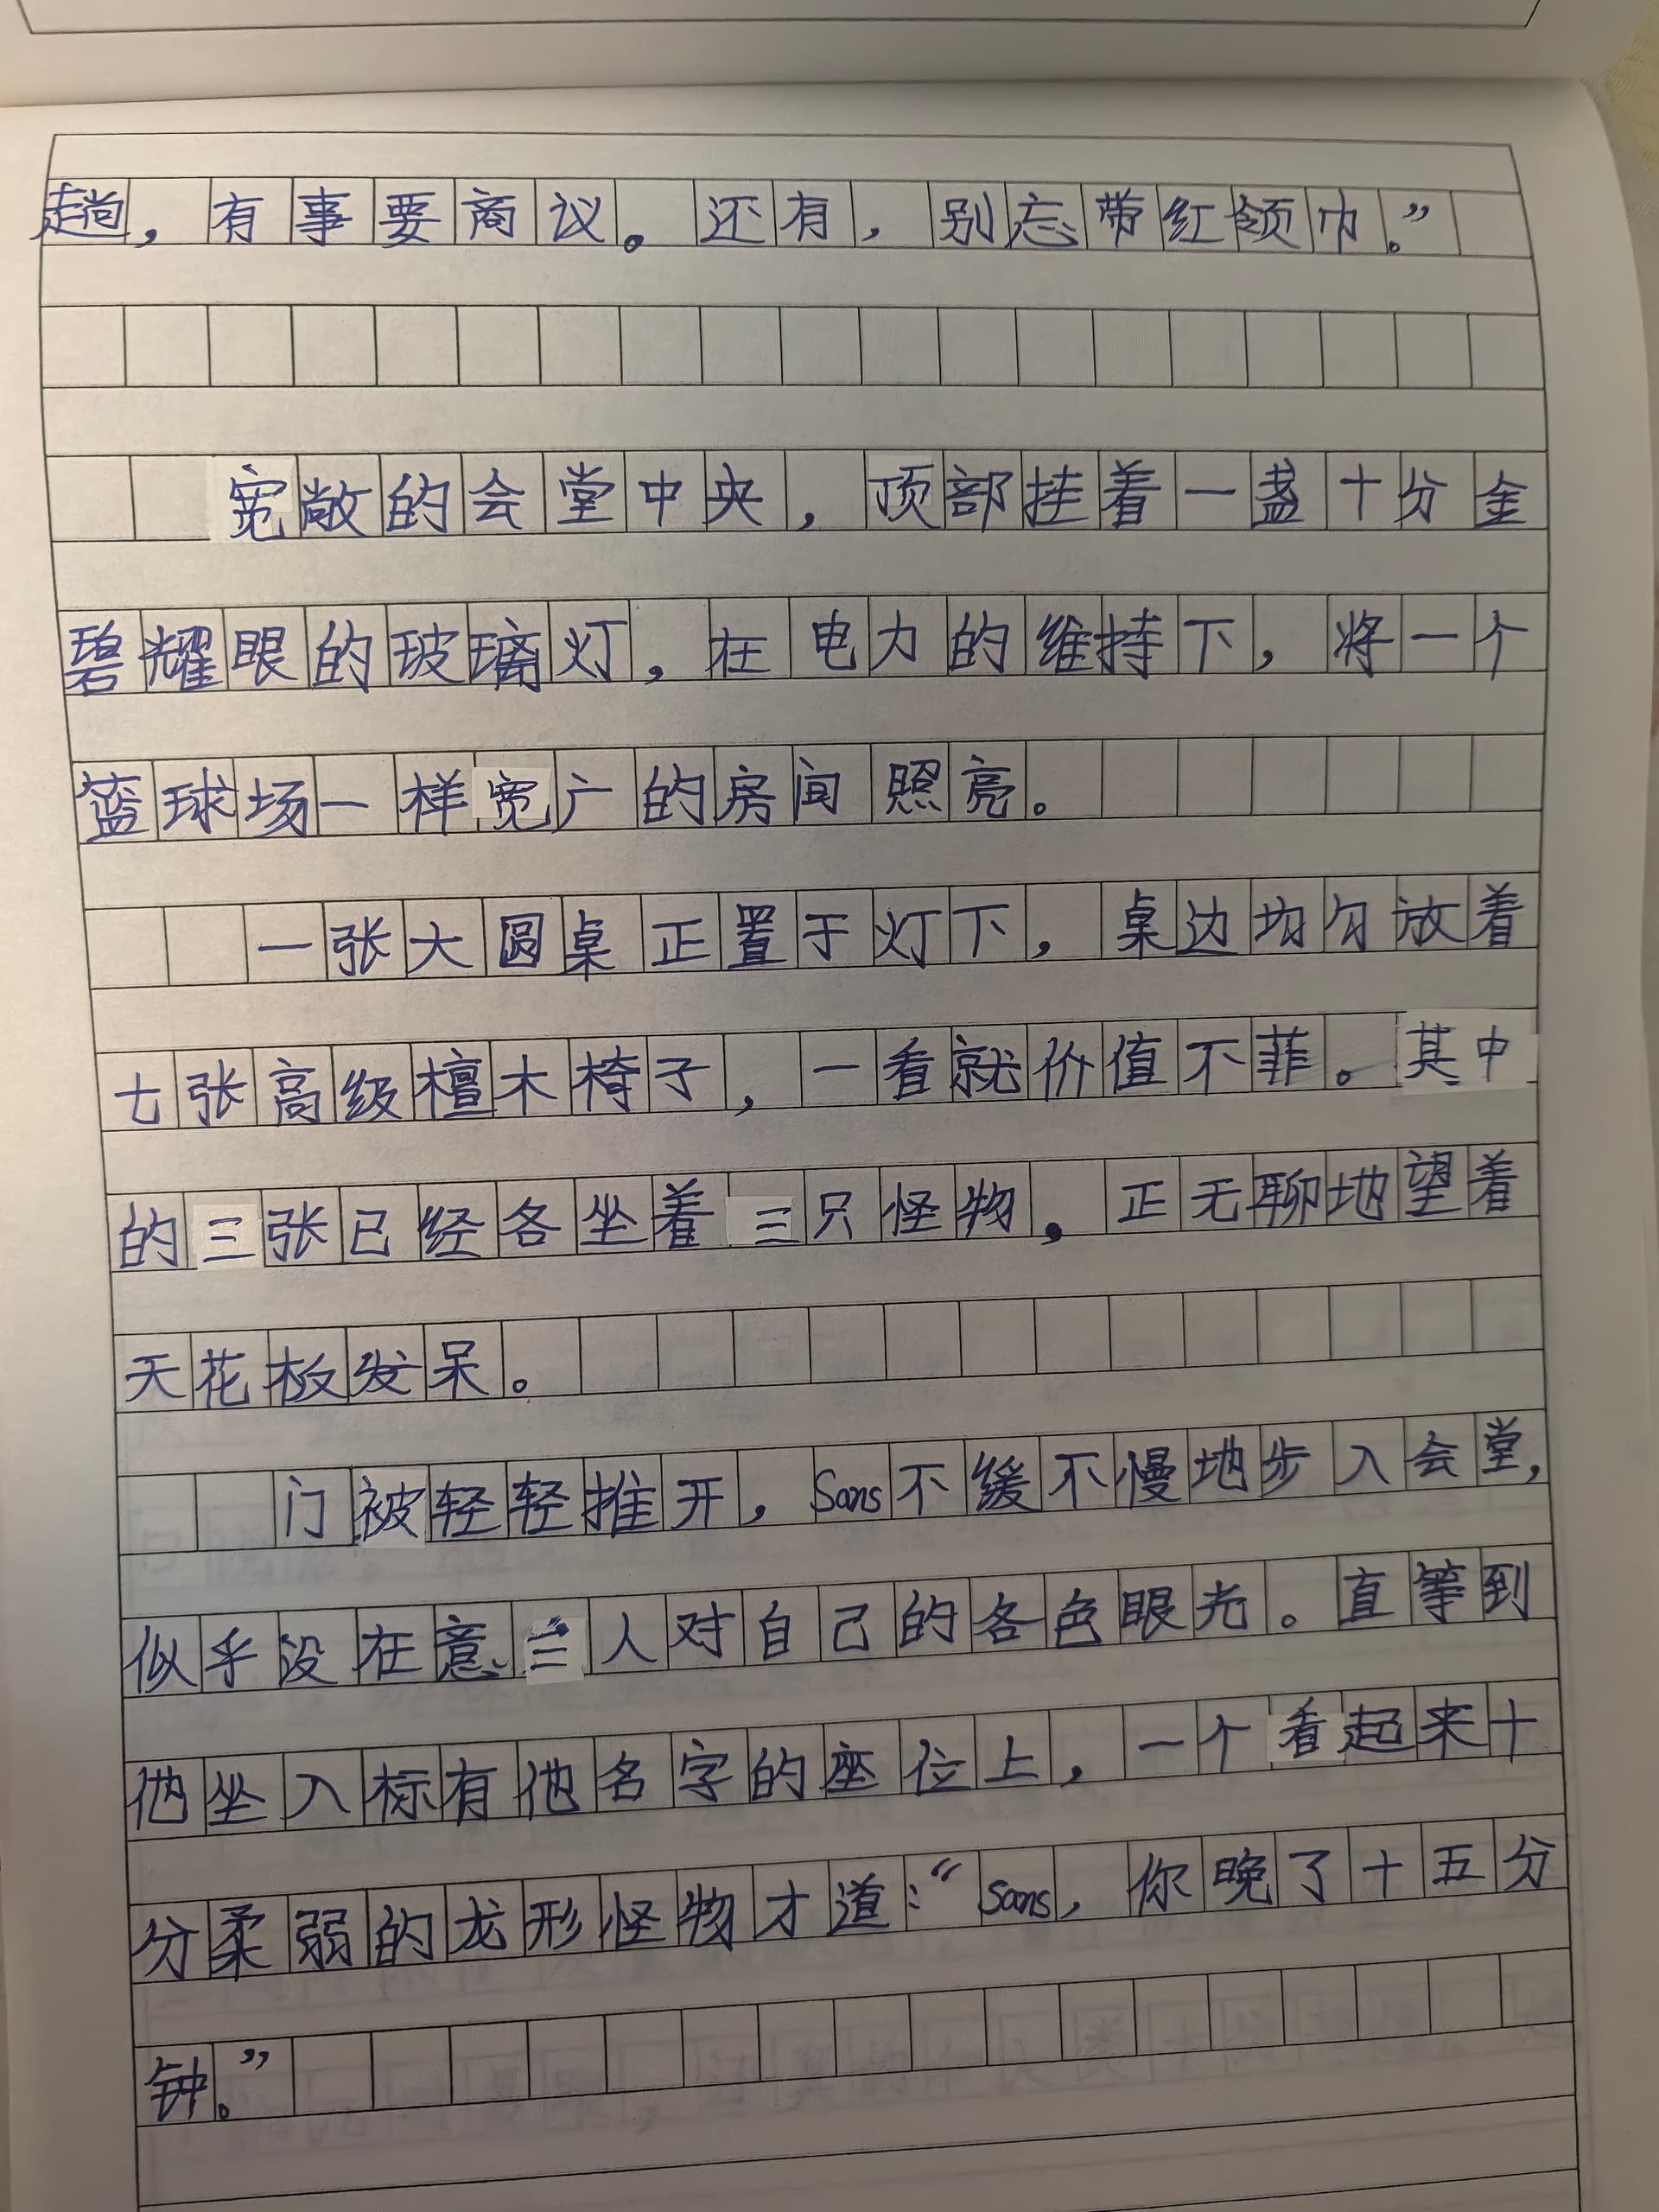 趟，有事要商议。还有，别忘带红领巾。”
宽敞的会堂中央，顶部挂着一盏十分金
碧耀眼的玻璃灯，在电力的维持下，将一个
篮球场一样宽广的房间照亮。
一张大圆桌正置于灯下，桌边均匀放着
七张高级檀木椅子，一看就价值不菲。其中
的三张已经各坐着三只怪物，正无聊地望着
天花板发呆。
门被轻轻推开，Sans不缓不慢地步入会堂，
似乎没在意三人对自己的各色眼光。直等到
他坐入标有他名字的座位上，一个看起来十
分柔弱的龙形怪物才道：“Sans，你晚了十五分
钟。”